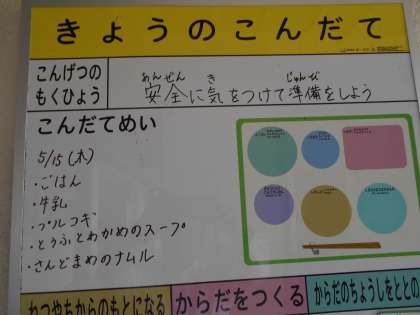 きょうのこんだて
こんげつの
もくひょう
あんぜん き じゅんび
安全に気をつけて準備をしよう
こんだてめい
5/15(木)
・ごはん
・牛乳
・プルコギ
・とうふとわかめのスープ
・さんどまめのナムル
ねつやちからのもとになる
からだをつくる
からだのちょうしをととの